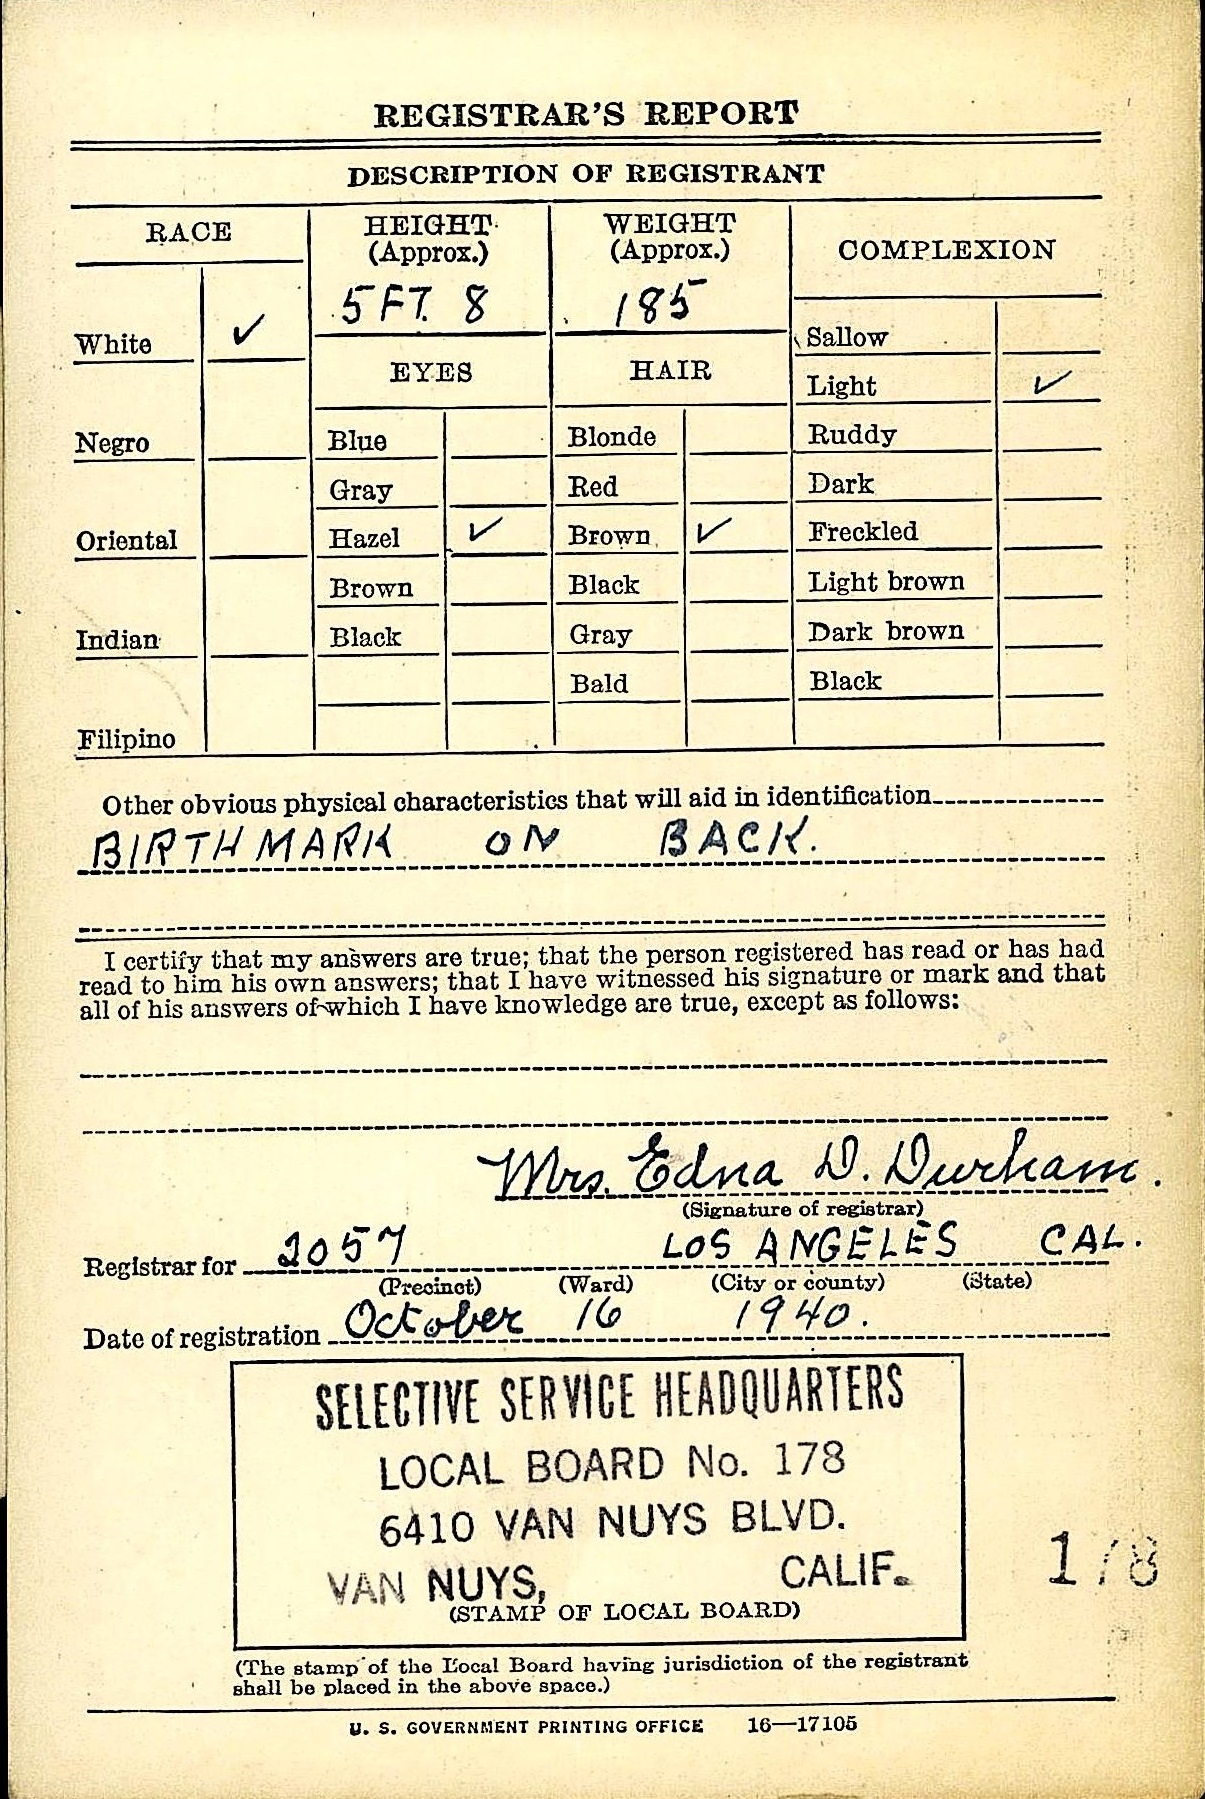 REGISTRAR'S REPORT
DESCRIPTION OF REGISTRANT
RACE
HEIGHT (Approx.)
WEIGHT (Approx.)
COMPLEXION
5 FT. 8
185
White ✓
Sallow
EYES
HAIR
Light ✓
Negro
Blue
Blonde
Ruddy
Gray
Red
Dark
Oriental
Hazel ✓
Brown ✓
Freckled
Brown
Black
Light brown
Indian
Black
Gray
Dark brown
Bald
Black
Filipino
Other obvious physical characteristics that will aid in identification
BIRTHMARK ON BACK.
I certify that my answers are true; that the person registered has read or has had
read to him his own answers; that I have witnessed his signature or mark and that
all of his answers of which I have knowledge are true, except as follows:
Mrs. Edna D. Durham.
(Signature of registrar)
Registrar for 2057 LOS ANGELES CAL.
(Precinct) (Ward) (City or county) (State)
Date of registration October 16 1940.
SELECTIVE SERVICE HEADQUARTERS
LOCAL BOARD No. 178
6410 VAN NUYS BLVD.
VAN NUYS, CALIF.
(STAMP OF LOCAL BOARD)
178
(The stamp of the Local Board having jurisdiction of the registrant
shall be placed in the above space.)
U. S. GOVERNMENT PRINTING OFFICE 16—17105